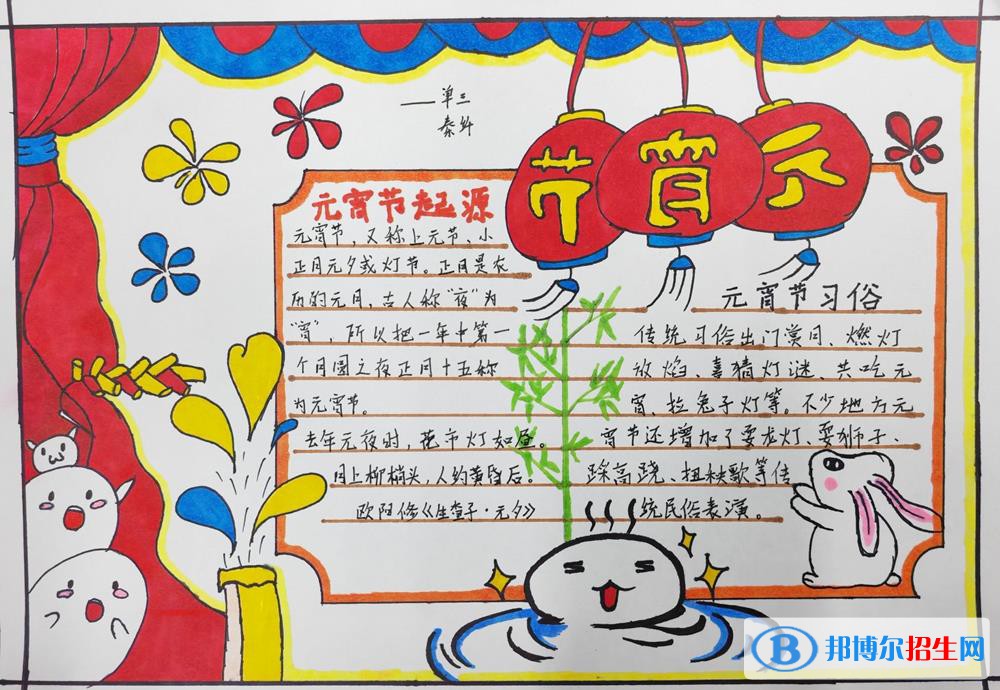 ——单三
元宵节
元宵节起源
元宵节，又称上元节、小
正月元夕或灯节。正月是农
历的元月，古人称“夜”为
“宵”，所以把一年中第一
个月圆之夜正月十五称
为元宵节。
去年元夜时，花市灯如昼。
月上柳梢头，人约黄昏后。
欧阳修《生查子·元夕》
元宵节习俗
传统习俗出门赏月、燃灯
放焰、喜猜灯谜、共吃元
宵、拉兔子灯等。不少地方元
宵节还增加了耍龙灯、耍狮子、
踩高跷、扭秧歌等传
统民俗表演。
B 邦博尔招生网